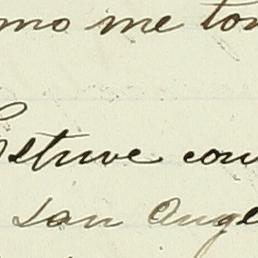 mo me ton
Estuve con
San Angel